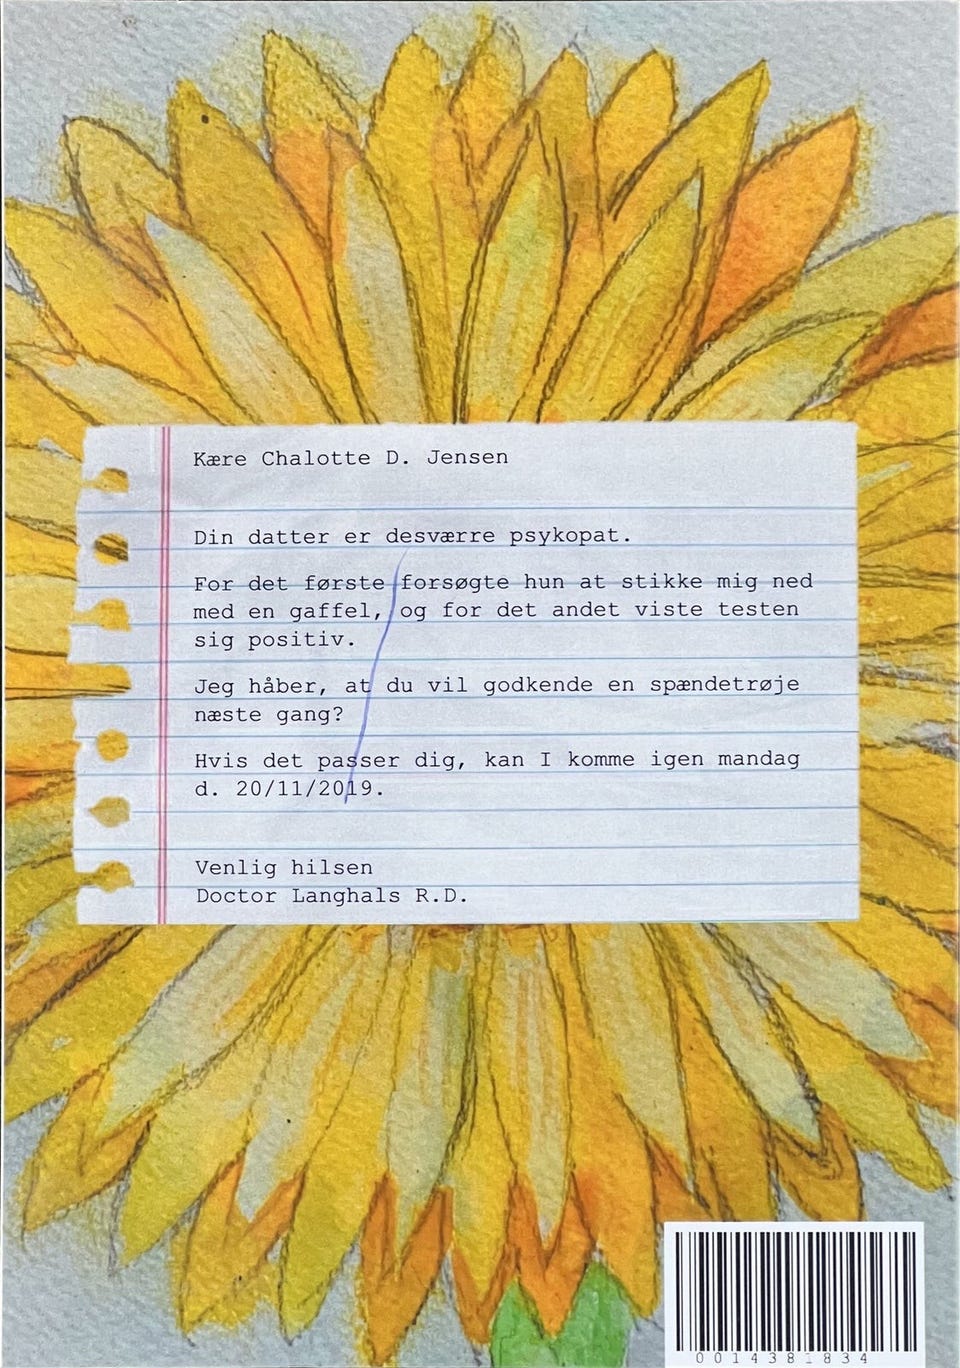 Kære Chalotte D. Jensen
Din datter er desværre psykopat.
For det første forsøgte hun at stikke mig ned
med en gaffel, og for det andet viste testen
sig positiv.
Jeg håber, at du vil godkende en spændetrøje
næste gang?
Hvis det passer dig, kan I komme igen mandag
d. 20/11/2019.
Venlig hilsen
Doctor Langhals R.D.
0014381834